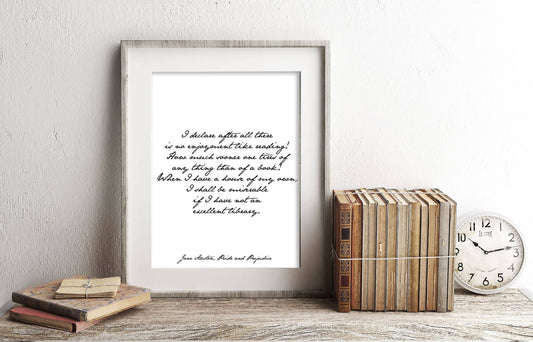 I declare after all there
is no enjoyment like reading!
How much sooner one tires of
any thing than of a book!
When I have a house of my own,
I shall be miserable
if I have not an
excellent library.
Jane Austen, Pride and Prejudice